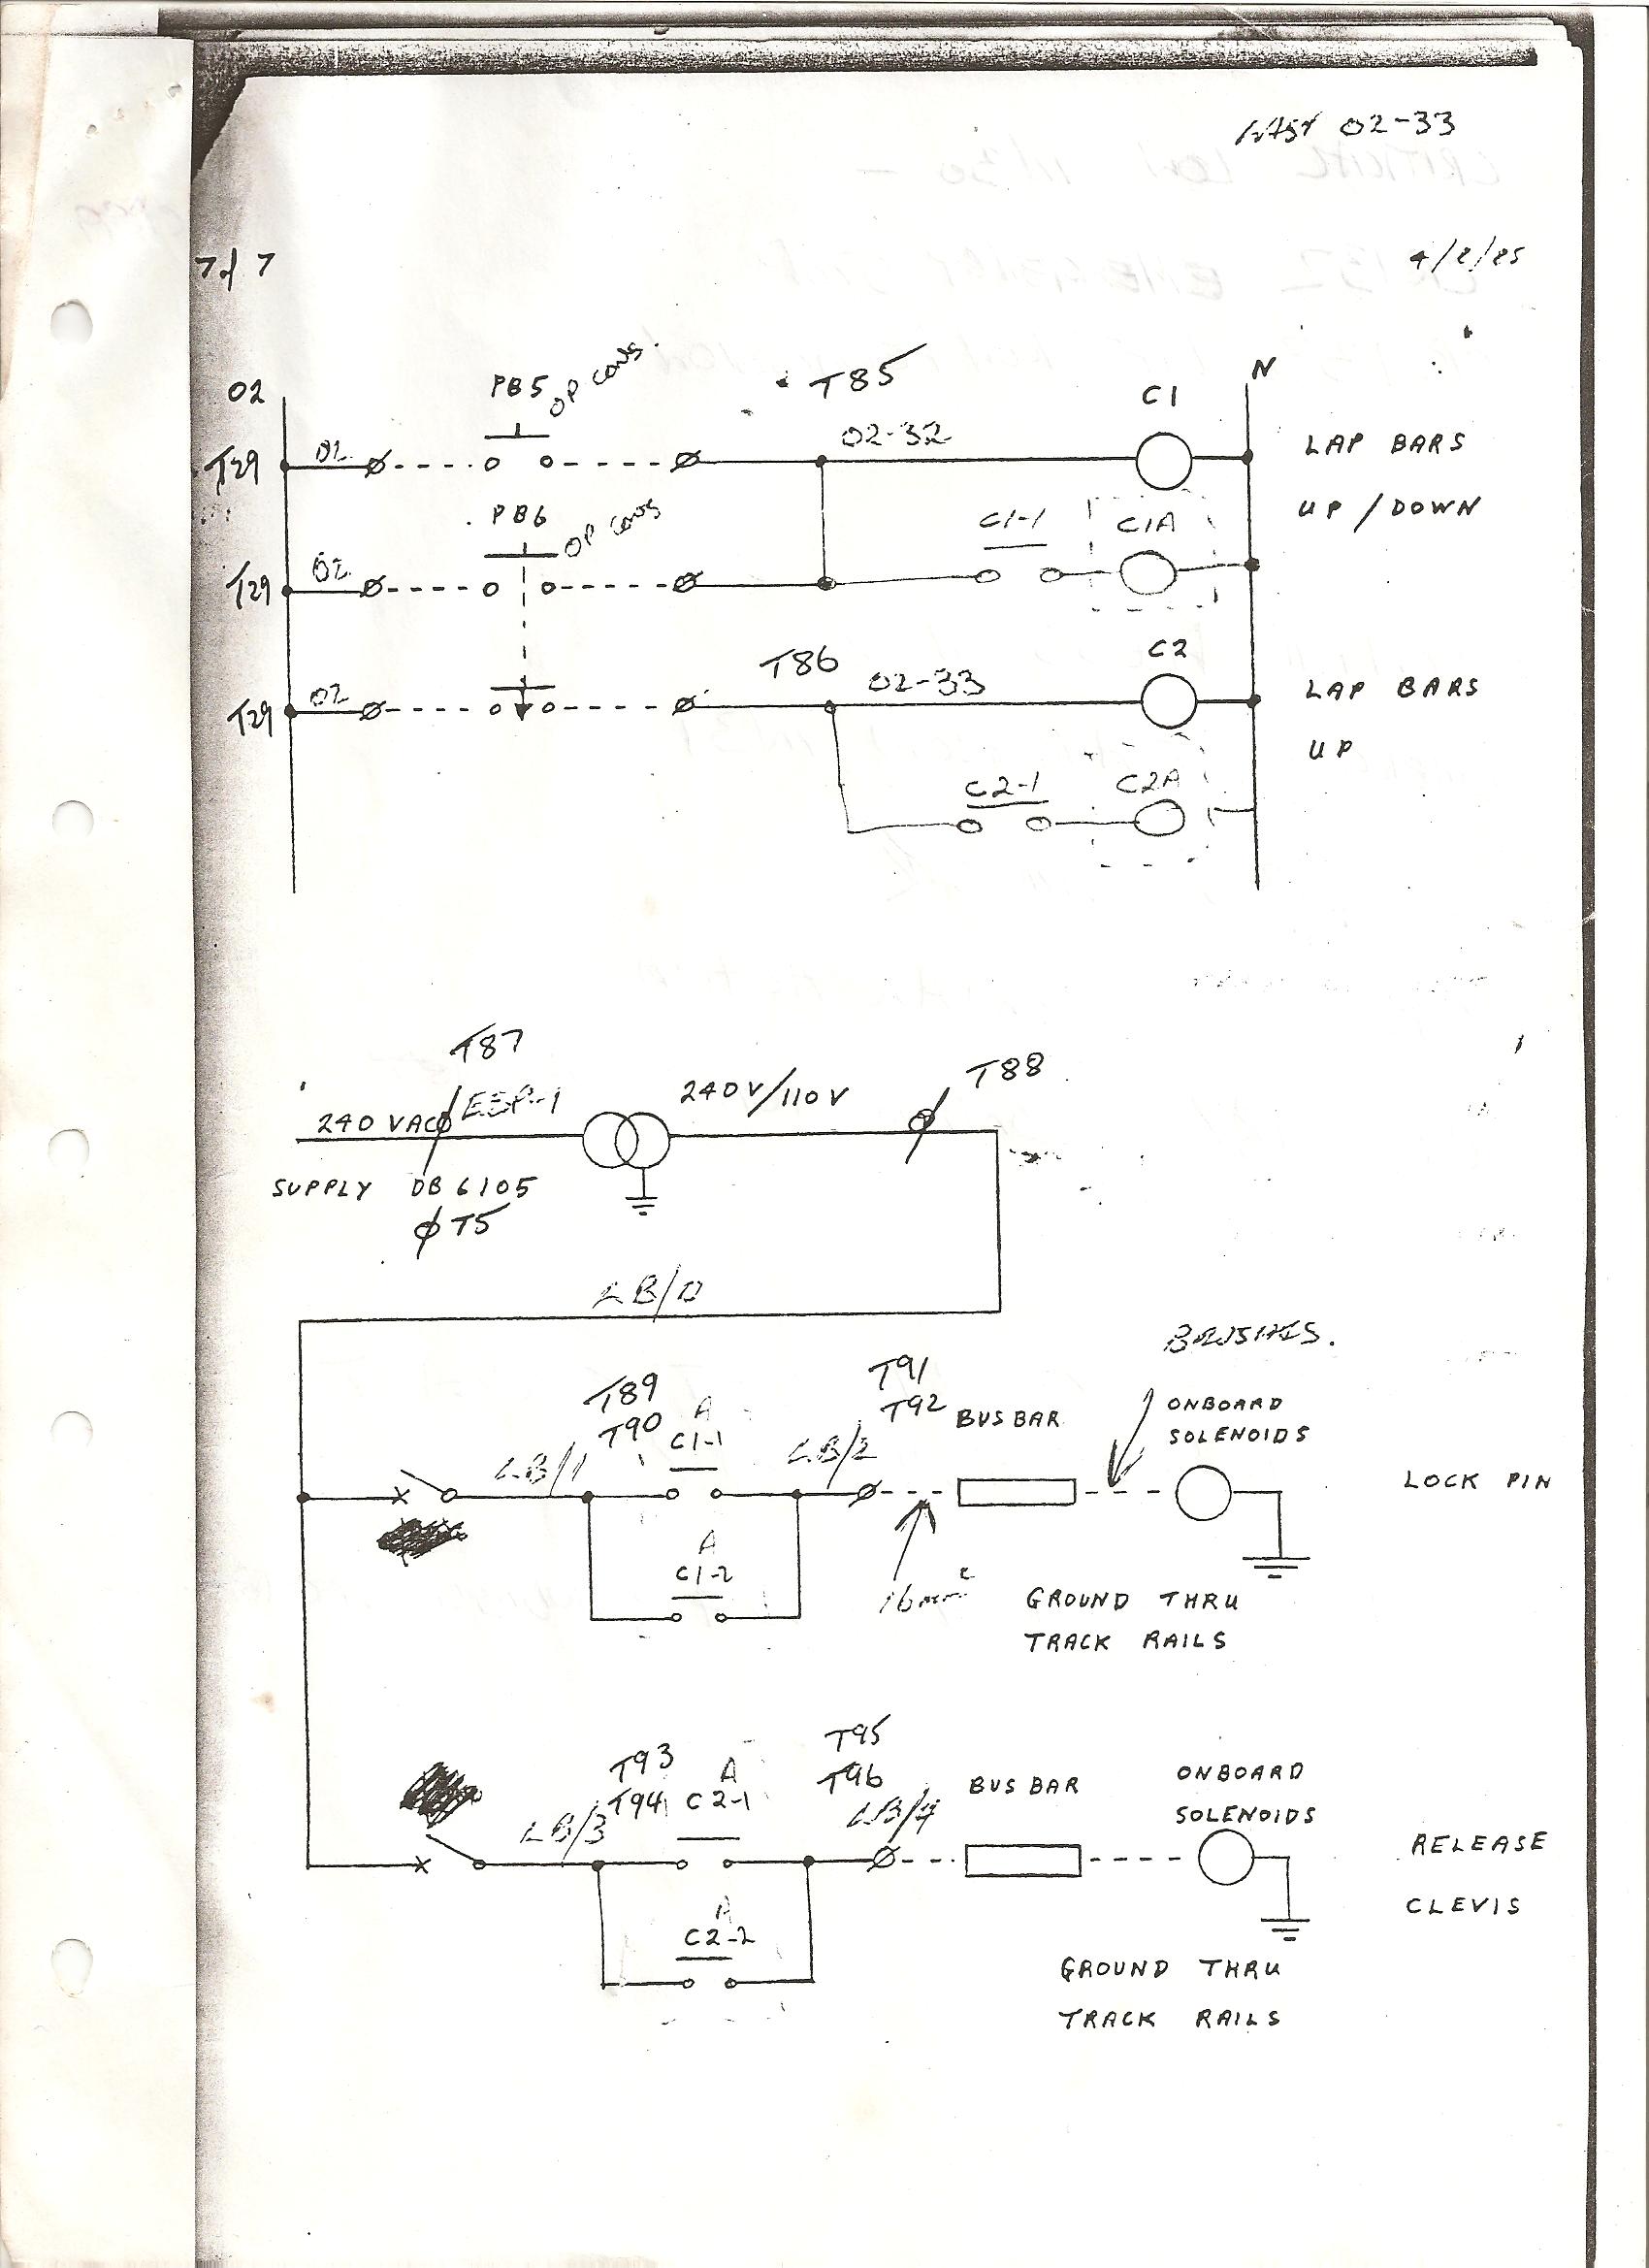 LAST 02-33
7 of 7
4/2/85
02
PB5
OP cons.
T85
C1
N
T29
02
02-32
LAP BARS
UP / DOWN
PB6
OP cons
C1-1
C1A
T29
02
C2
T86
02-33
LAP BARS
UP
T29
02
C2-1
C2A
T87
T88
240 VAC
ESP-1
240V/110V
SUPPLY DB 6105
T5
LB/0
BRUSHES.
T91
T92
T89
T90
A
C1-1
BUS BAR
ONBOARD
SOLENOIDS
LB/1
LB/2
LOCK PIN
A
C1-2
16mm²
GROUND THRU
TRACK RAILS
T95
T96
T93
T94
A
C2-1
BUS BAR
ONBOARD
SOLENOIDS
LB/3
LB/4
RELEASE
CLEVIS
A
C2-2
GROUND THRU
TRACK RAILS